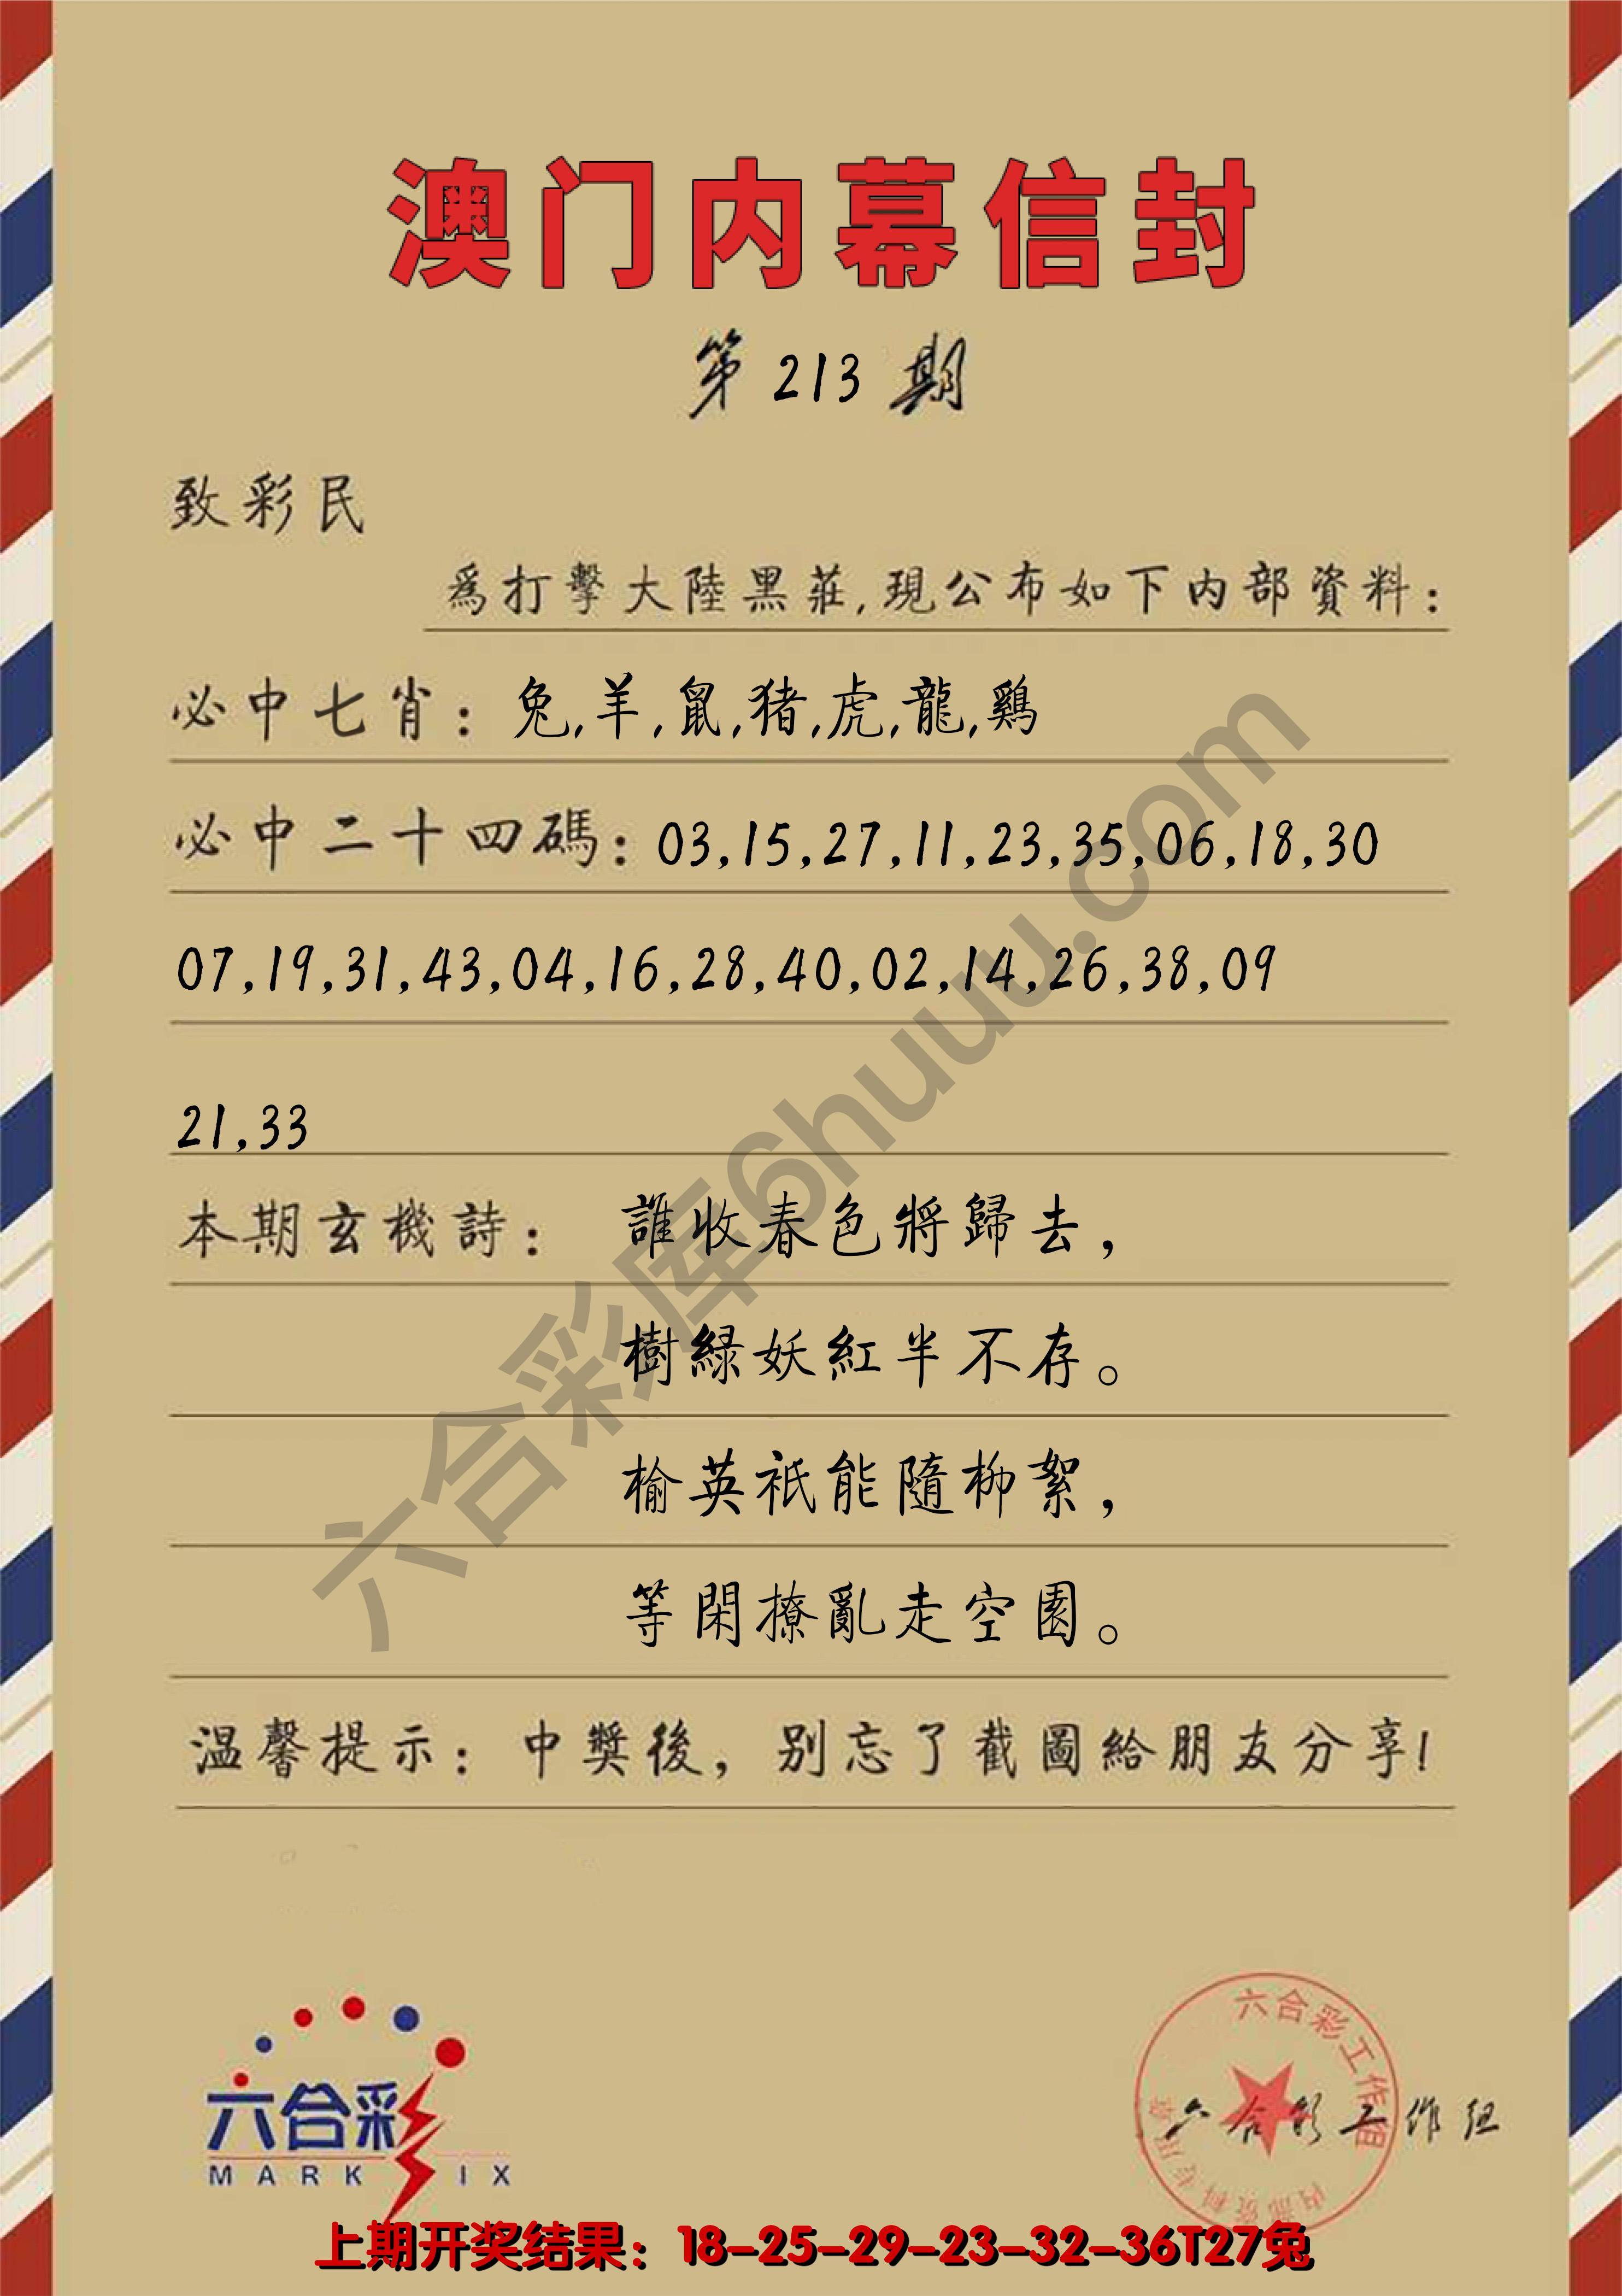 澳门内幕信封
第 213 期
致彩民
為打擊大陸黑莊,現公布如下内部資料:
必中七肖: 兔,羊,鼠,猪,虎,龍,鷄
必中二十四碼: 03,15,27,11,23,35,06,18,30
07,19,31,43,04,16,28,40,02,14,26,38,09
21,33
本期玄機詩: 誰收春色將歸去,
樹緑妖紅半不存。
榆英祇能隨柳絮,
等閑撩亂走空園。
温馨提示: 中獎後, 别忘了截圖給朋友分享!
六合彩库6huuu.com
六合彩
MARK IX
六合彩工作组
内部资料专用章
六合彩工作组
上期开奖结果: 18-25-29-23-32-36T27兔